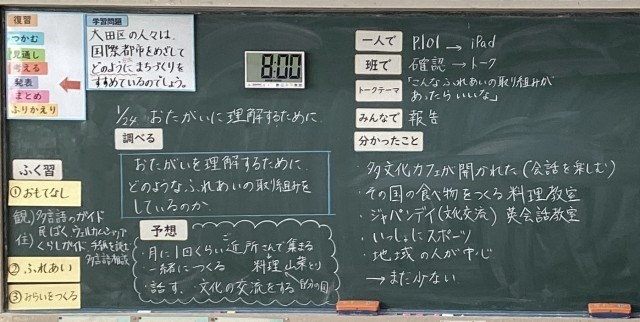 復習
つかむ
見通し
考える
発表
まとめ
ふりかえり
学習問題
大田区の人々は、
国際都市をめざして
どのようにまちづくりを
すすめているのでしょう。
8:00
1/24 おたがいに理解するために
調べる
おたがいを理解するために
どのようなふれあいの取り組みを
しているのか
予想
・月に1回くらい近所さんで集まる
・一緒につくる 料理 山菜とり
・話す、文化の交流をする 自分の国
ふく習
①おもてなし
観)多言語のガイド
民ぱく、ウェルカム
住)くらしガイド
多言語相談
②ふれあい
③みらいをつくる
一人で P.101 → iPad
班で 確認 → トーク
トークテーマ 「こんなふれあいの取り組みが
あったらいいな」
みんなで 報告
分かったこと
・多文化カフェが開かれた(会話を楽しむ)
・その国の食べ物をつくる料理教室
・ジャパンデイ(文化交流) 英会話教室
・いっしょにスポーツ
・地域の人が中心
→まだ少ない